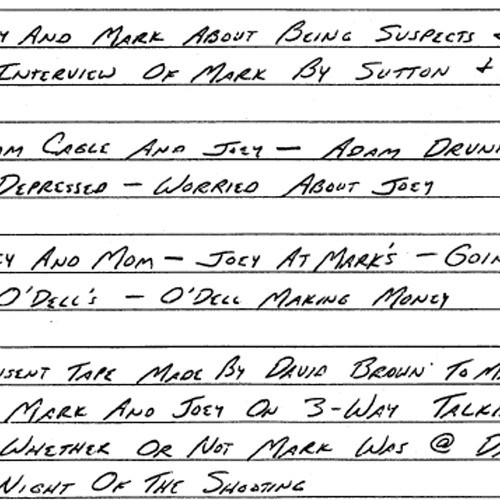 Y AND MARK ABOUT BEING SUSPECTS &
INTERVIEW OF MARK BY SUTTON &
AM CAGLE AND JOEY — ADAM DRUN
DEPRESSED — WORRIED ABOUT JOEY
EY AND MOM — JOEY AT MARK'S — GOIN
O'DELL'S — O'DELL MAKING MONEY
NSENT TAPE MADE BY DAVID BROWN TO M
MARK AND JOEY ON 3-WAY TALKI
WHETHER OR NOT MARK WAS @ D
NIGHT OF THE SHOOTING